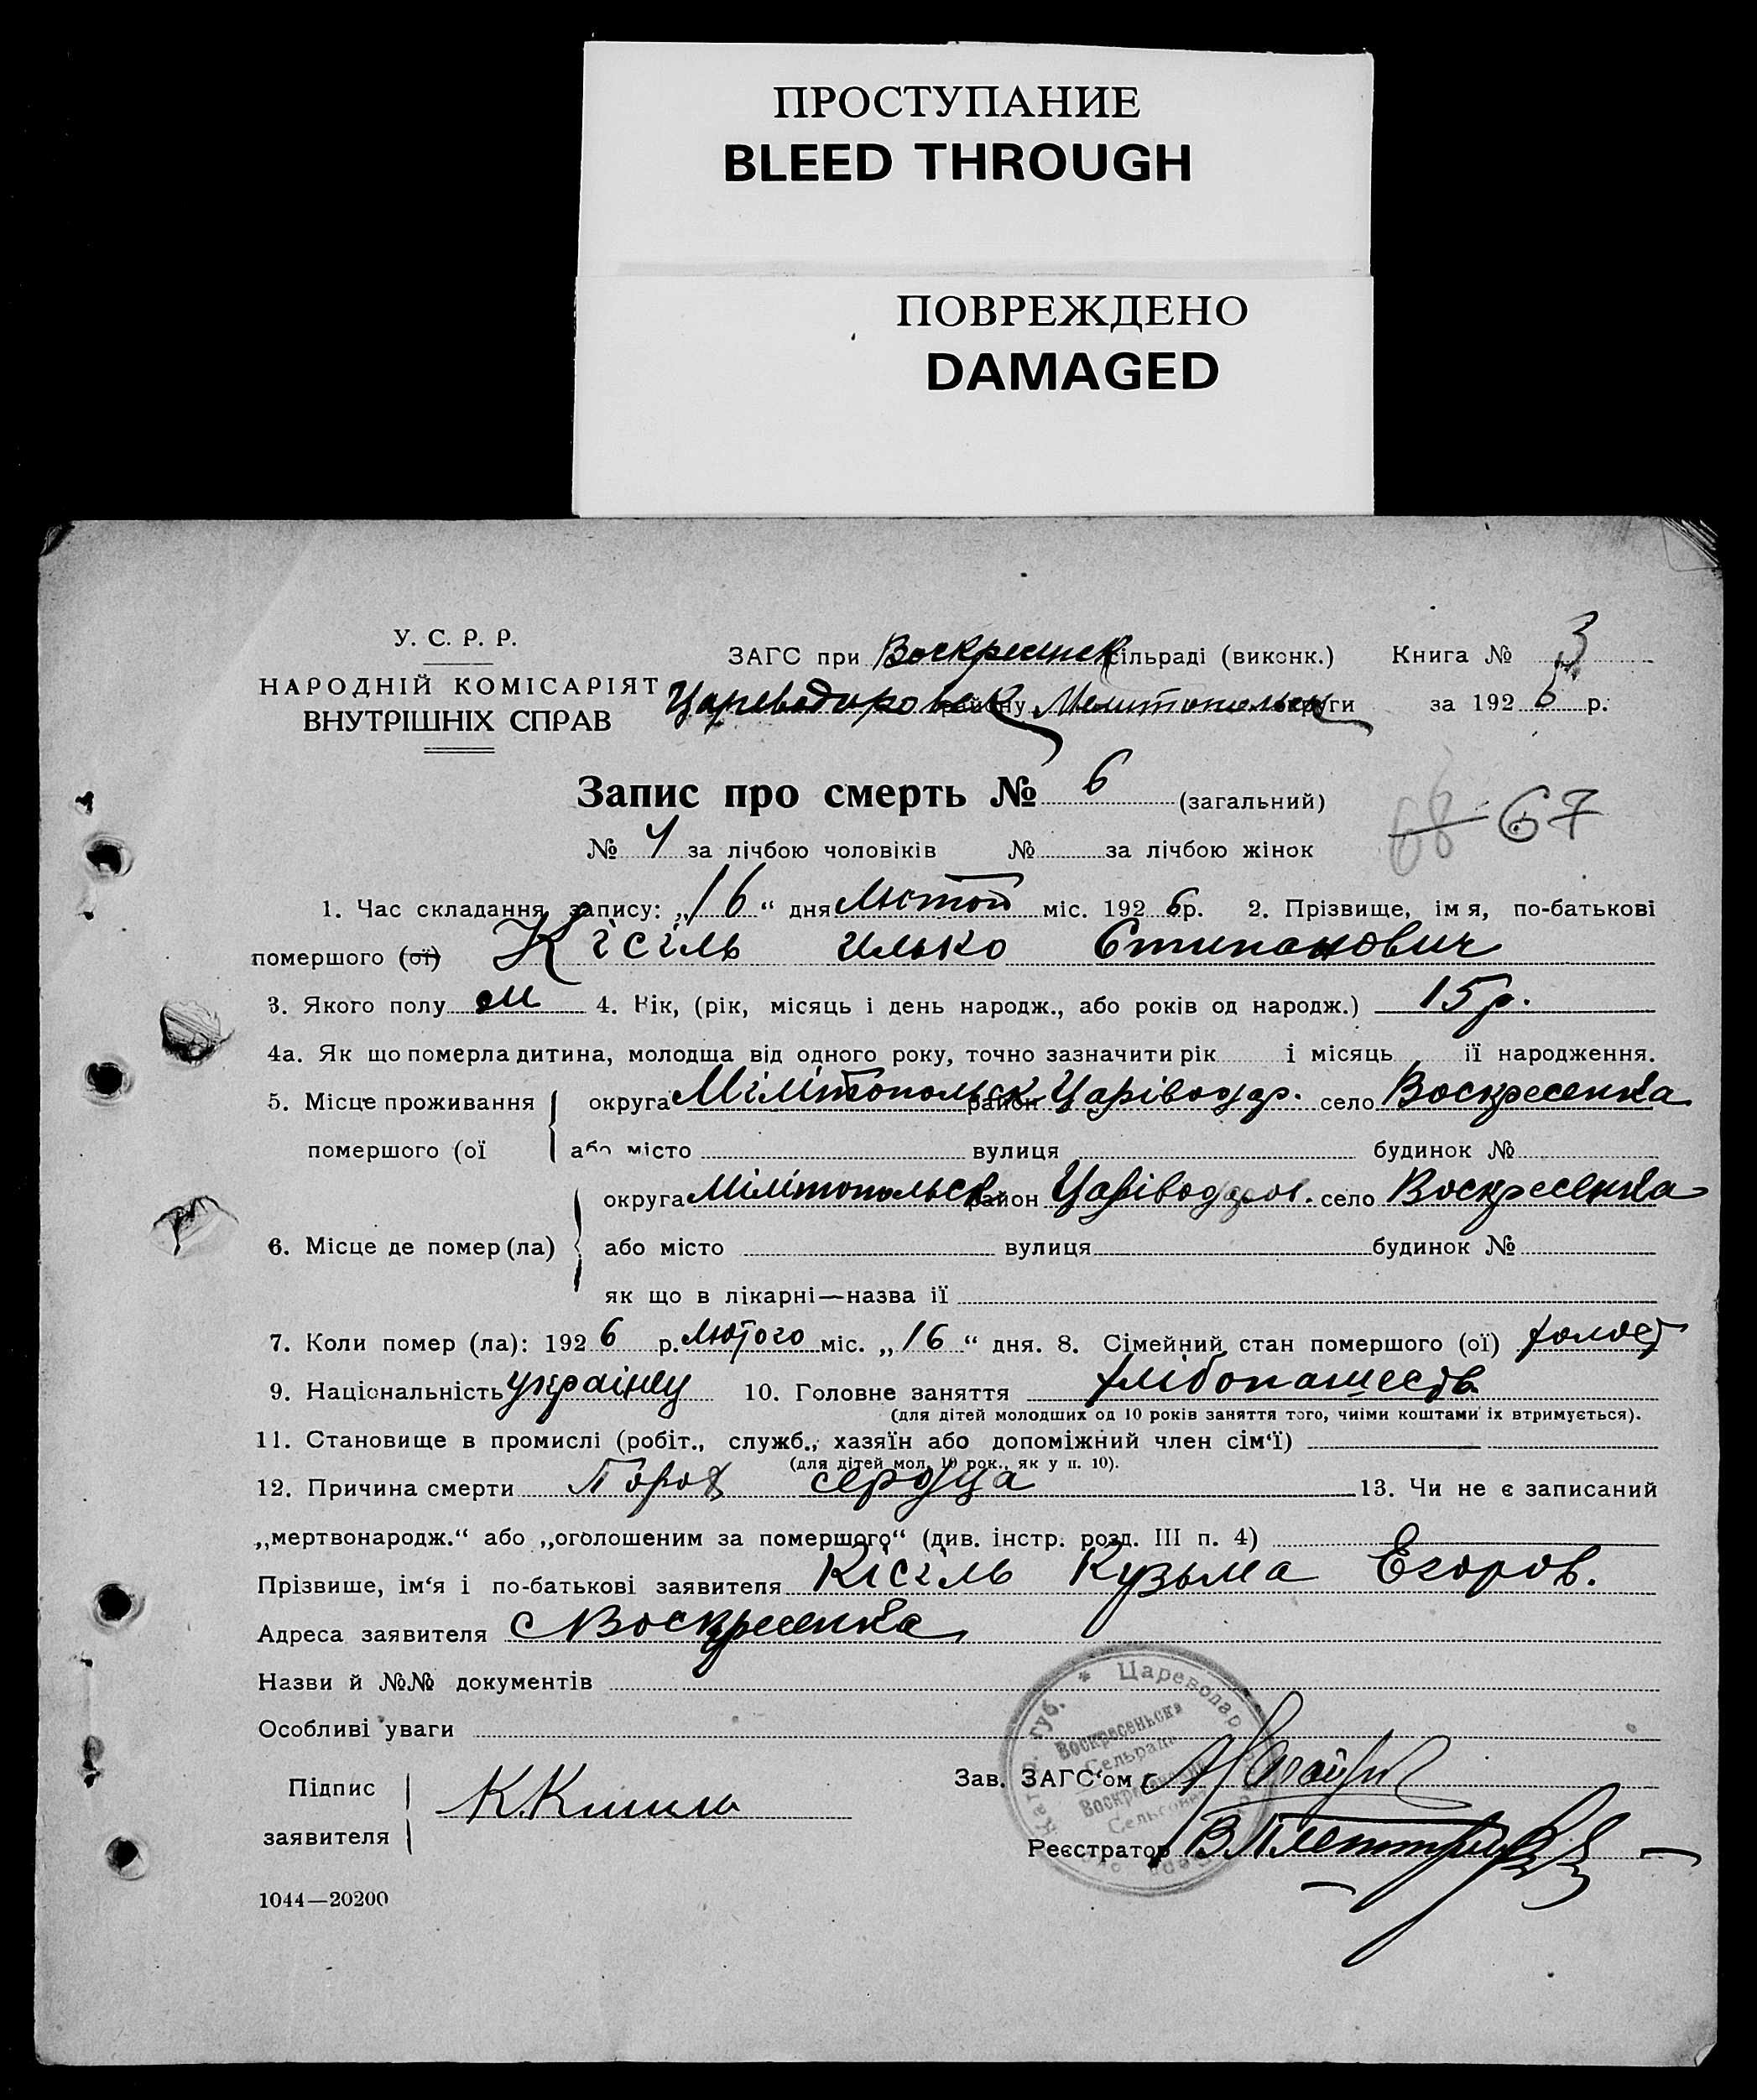 ПРОСТУПАНИЕ
BLEED THROUGH
ПОВРЕЖДЕНО
DAMAGED
У. С. Р. Р.
НАРОДНІЙ КОМІСАРІЯТ
ВНУТРІШНІХ СПРАВ
ЗАГС при Воскресенск сільраді (виконк.) Книга № 3
Цареводаровск району Мелитопольск округи за 1926 р.
Запис про смерть № 6 (загальний)
68 67
№ 4 за лічбою чоловіків № за лічбою жінок
1. Час складання запису: „16“ дня Лютого міс. 1926 р. 2. Прізвище, ім я, по-батькові
помершого (ої) Кісіль Илько Стипанович
3. Якого полу М 4. Вік, (рік, місяць і день народж., або років од народж.) 15 р.
4а. Як що померла дитина, молодща від одного року, точно зазначити рік і місяць її народження.
5. Місце проживання округа Мілітопольск район Царіводар. село Воскресенка
помершого (ої або місто вулиця будинок №
округа Мілітопольск район Царіводаров. село Воскресенка
6. Місце де помер (ла) або місто вулиця будинок №
як що в лікарні—назва її
7. Коли помер (ла): 1926 р. Лютого міс. „16“ дня. 8. Сімейний стан помершого (ої) холост
9. Національність українец 10. Головне заняття хлібопашеств
(для дітей молодших од 10 років заняття того, чиїми коштами їх втримується).
11. Становище в промислі (робіт., служб., хазяїн або допоміжний член сім‘ї)
(для дітей мол. 10 рок., як у п. 10).
12. Причина смерти Порок сердца 13. Чи не є записаний
„мертвонародж.“ або „оголошеним за помершого“ (див. інстр. розд. III п. 4)
Прізвише, ім‘я і по-батькові заявителя Кісіль Кузьма Егоров.
Адреса заявителя с Воскресенка
Назви й №№ документів
Особливі уваги
* Цареводар губ.
Воскресеньска
Сельрада
Сельсовет
Підпис
заявителя
К. Кисиль
Зав. ЗАГС‘ом
Реєстратор В.
1044—20200